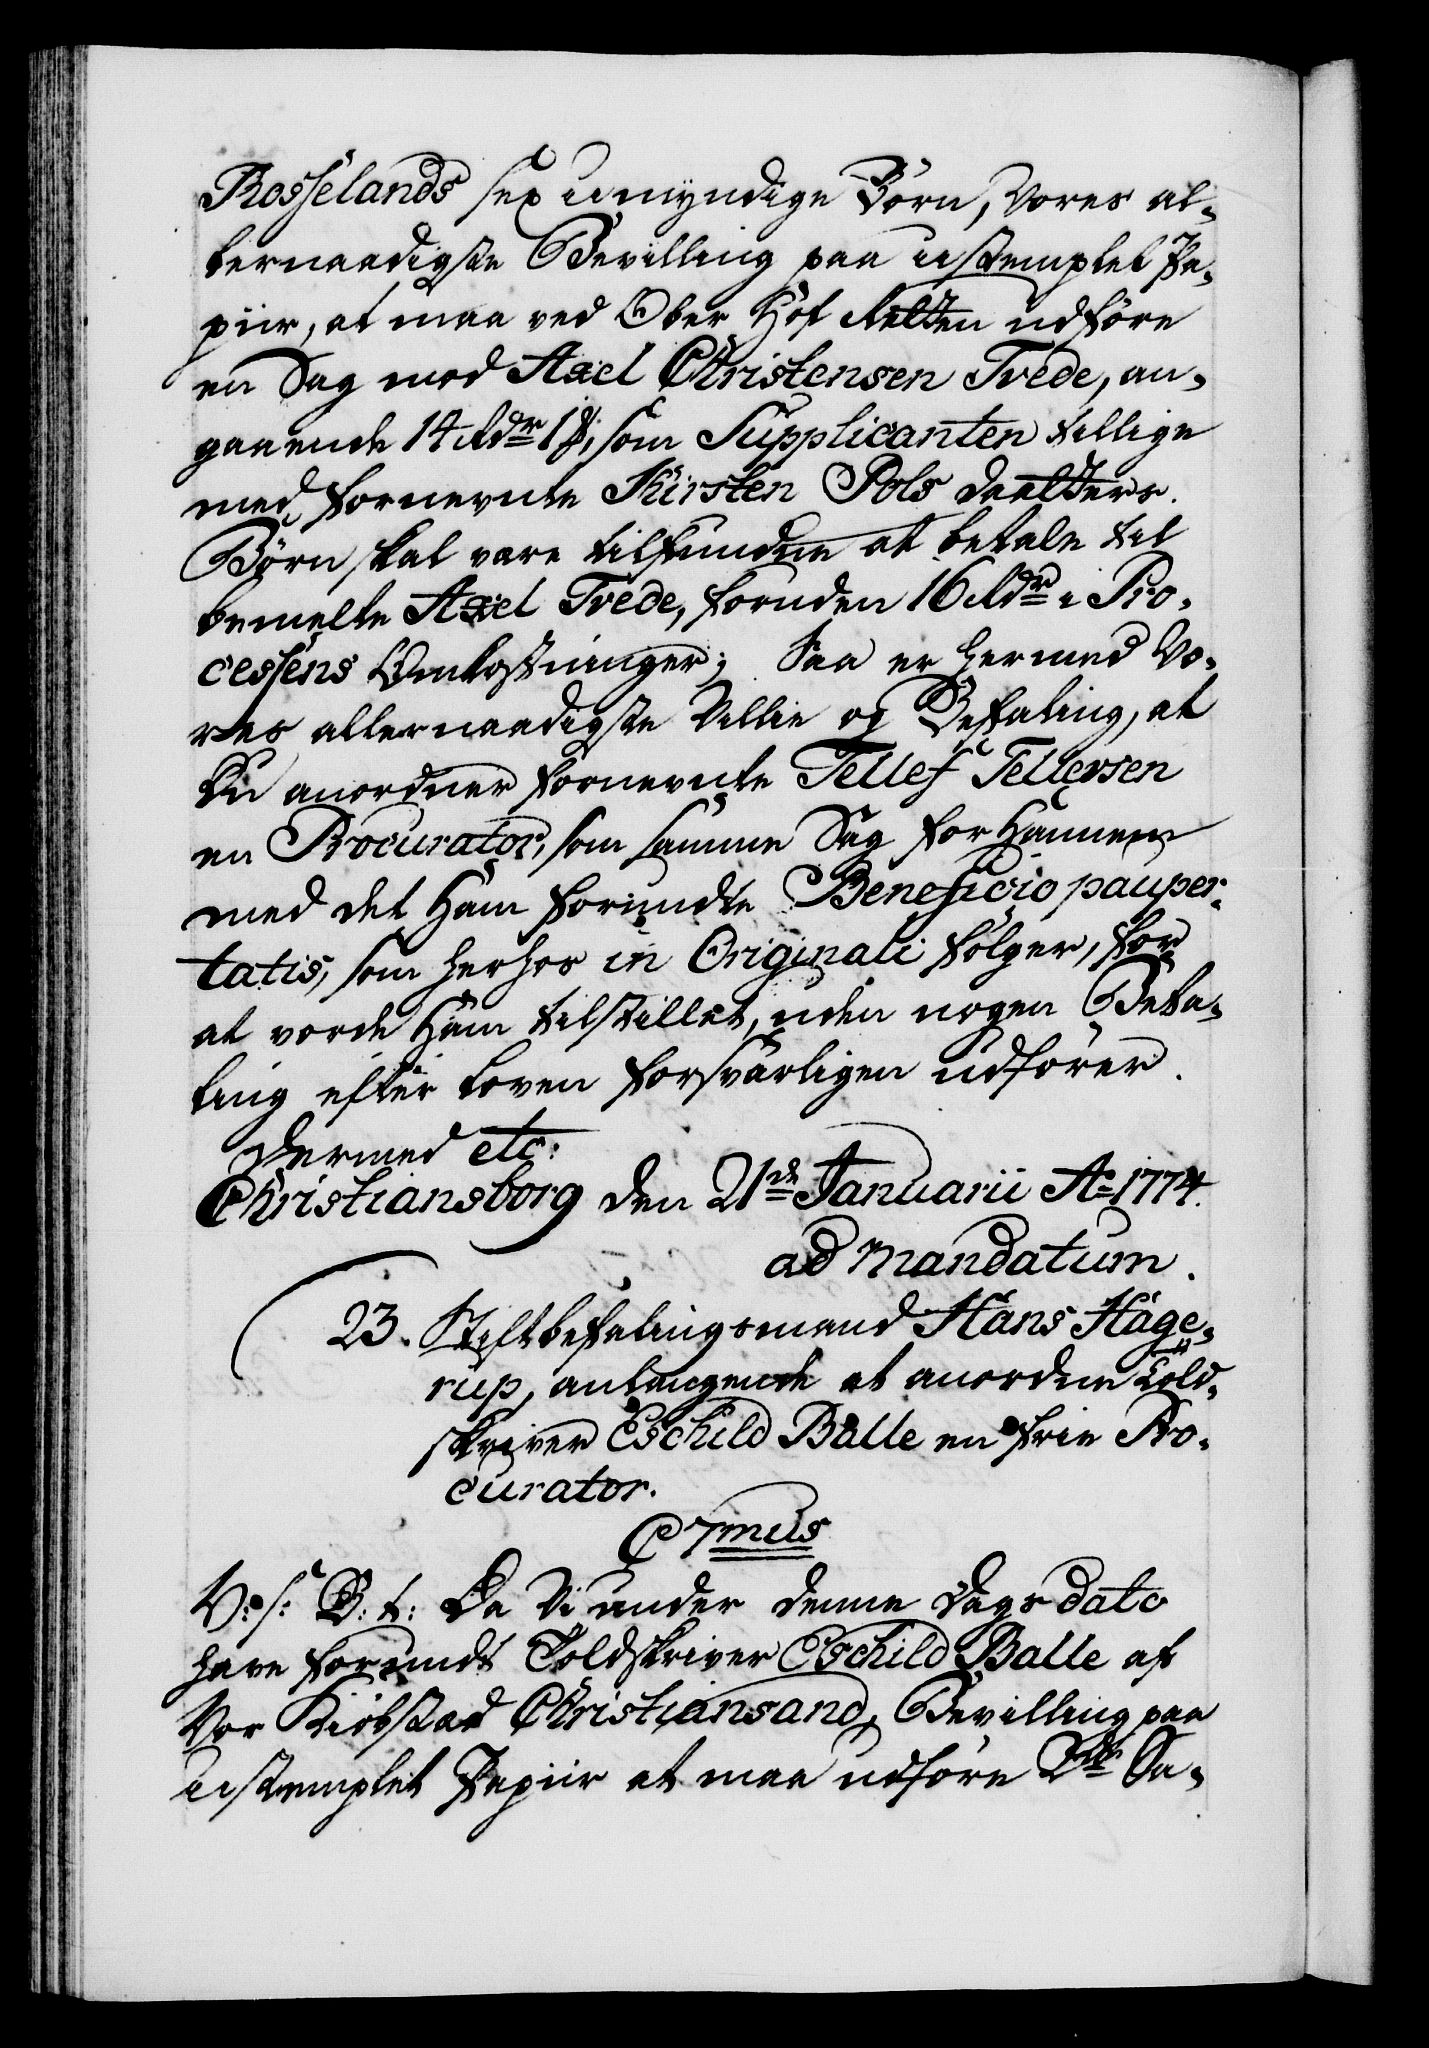 Rosselands sex umyndige Börn, Vores al-
lernaadigste Bevilling paa ustemplet Pa-
piir, at maa ved Ober Hof Retten udföre
en Sag mod Axel Christensen Trede, an-
gaaende 14 Rdr 1 ß, som Supplicanten tillige
med fornevnte Kirsten Pols
Börn skal være tilfunden at betale til
bemelte Axel Trede, foruden 16 Rdr i Pro-
cessens Omkostninger; Saa er hermed Vo-
res allernaadigste Villie og Befaling, at
Du anordner fornevnte Tellef Tellefsen
en Procurator, som samme Sag for Hannem
med det Ham forundte Beneficio pauper-
tatis, som herhos in Originali fölger, for
at vorde Ham tilstillet, uden nogen Beta-
ling efter Loven forsvarligen udförer.
Dermed etc:
Christiansborg den 21de Januarii Ao 1774.
ad Mandatum.
23. Stiftbefalingsmand Hans Hage-
rup, anlangende at anordne Told-
skriver Eschild Balle en frie Pro-
curator.
C 7mus
V: s: G: t: Da Vi under denne Dags dato
have forundt Toldskriver Eschild Balle af
Vor Kiöbstad Christiansand, Bevilling paa
ustemplet Papiir at maa udföre 2de Sa-